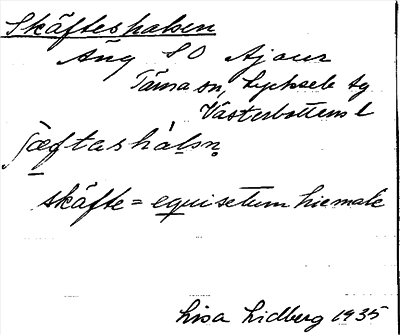 Skäfteshalsen
Äng SO Ajaur
Tärna sn, Lycksele tg
Västerbottens l
ʃæftashálsn̥
skäfte = equisetum hiemale
Lisa Lidberg 1935